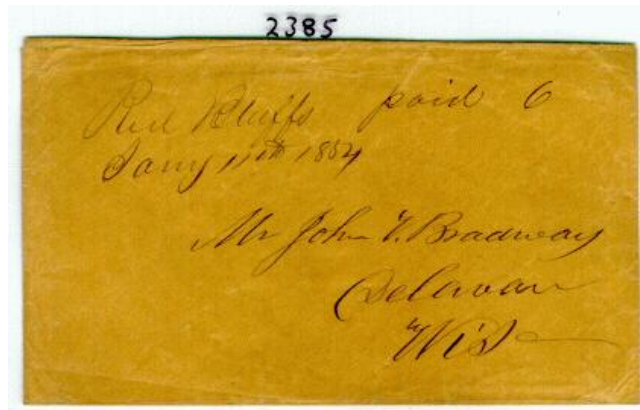 2385
Red Bluffs paid 6
Jany 11th 1854
Mr John T. Bradway
Delavan
Wis